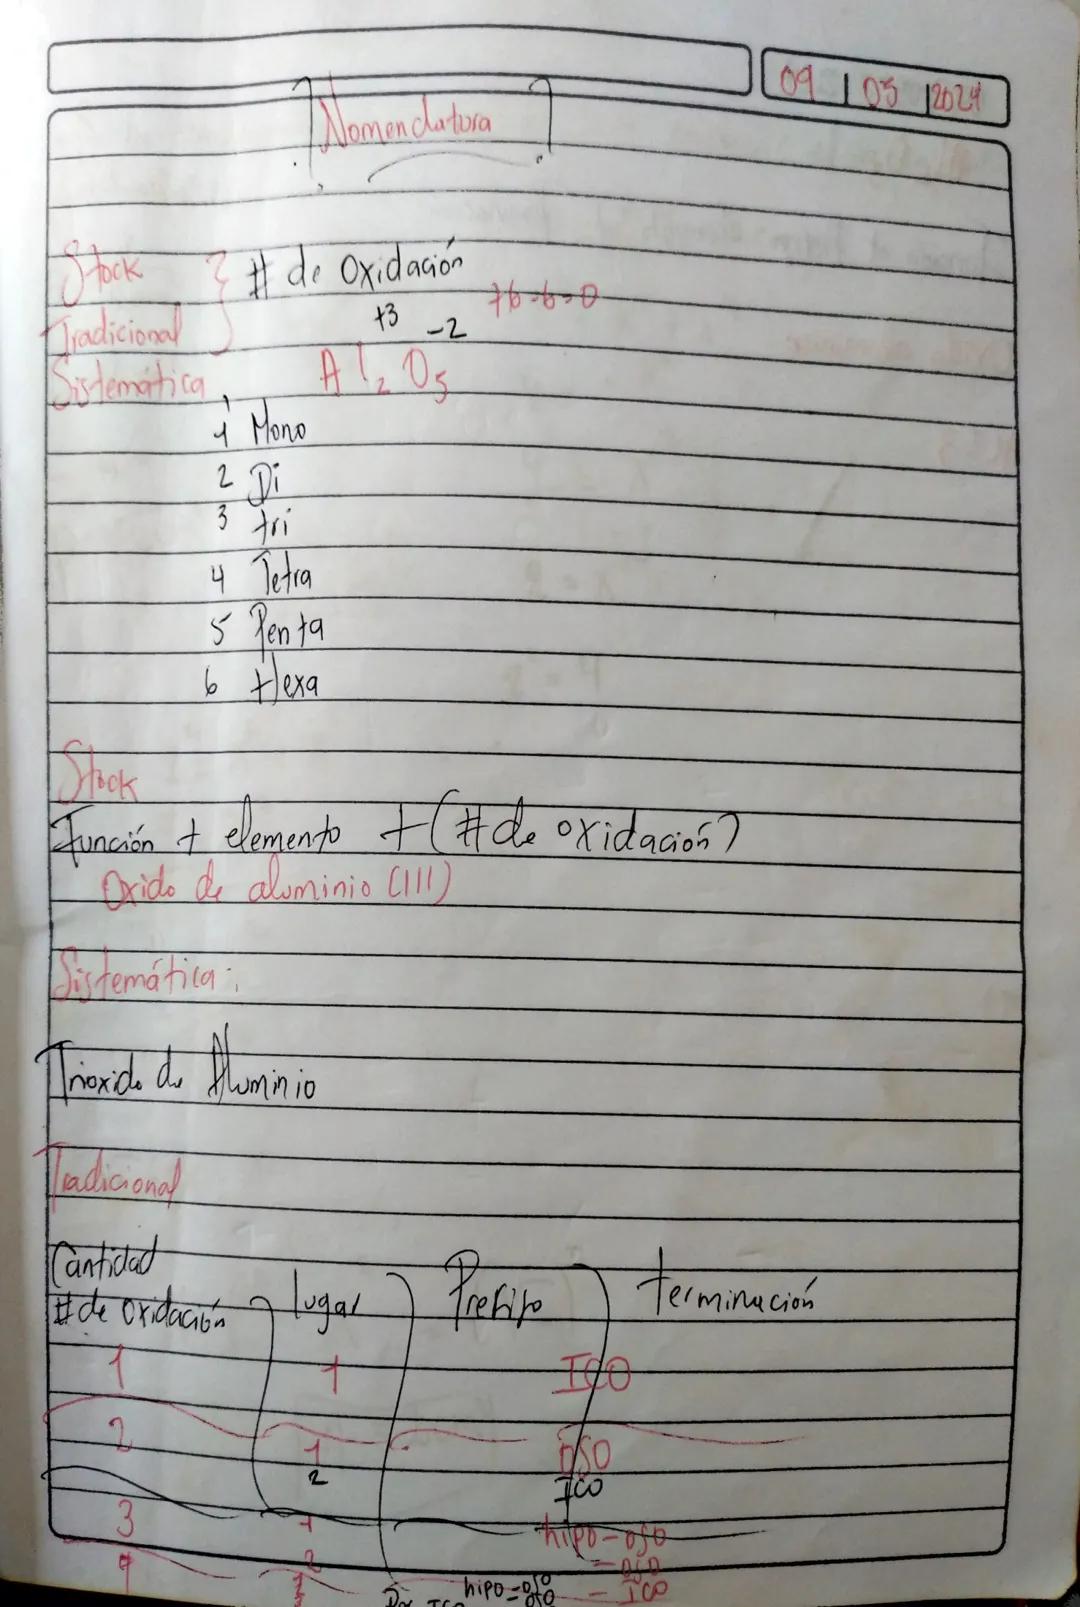 09 | 05 | 2024
Nomenclatura
Stock } # de Oxidación
+6-6=0
Tradicional
+3 -2
Sistemática
Al2O3
1 Mono
2 Di
3 tri
4 Tetra
5 Penta
6 Hexa
Stock
Función + elemento + (# de oxidación)
Oxido de aluminio (III)
Sistemática:
Trioxido de Aluminio
Tradicional
Cantidad
# de oxidación lugar Prefijo terminación
1 1 ICO
2 1 OSO
2 ICO
3 1 hipo-oso
2 - oso
3 - ICO
4
hipo-oso
oso
ICO